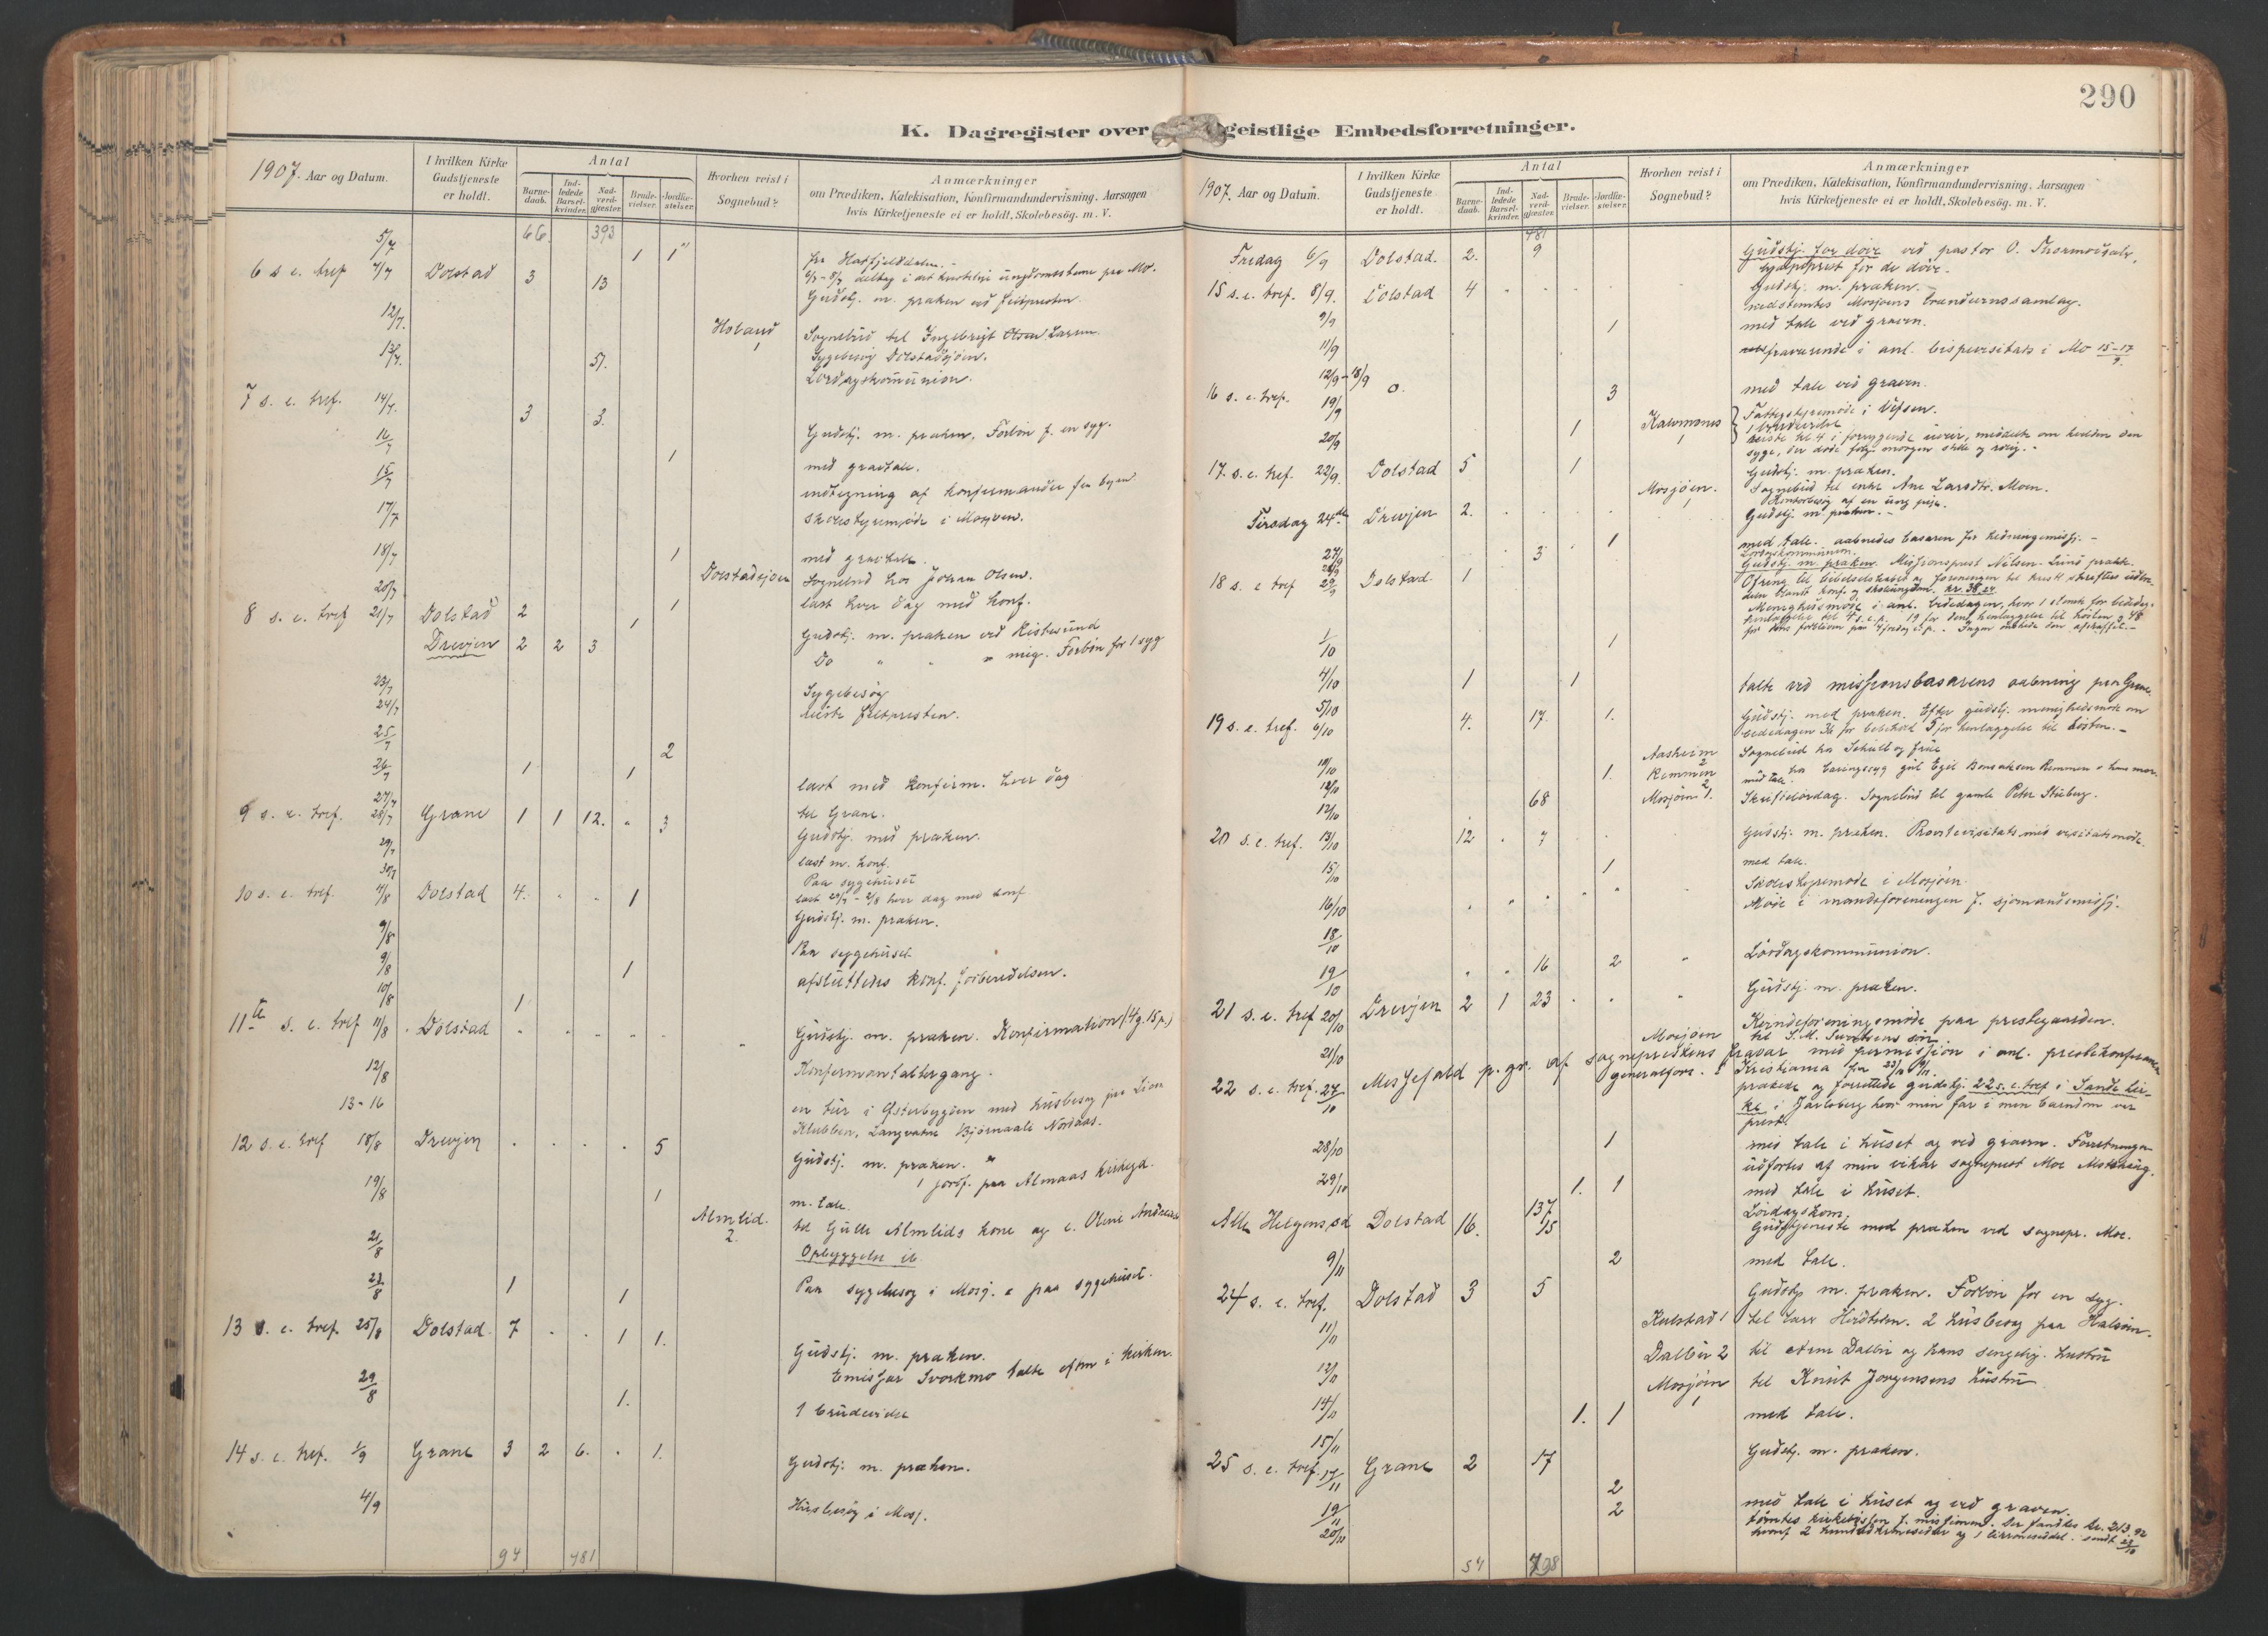 290
K. Dagregister over geistlige Embedsforretninger.
1907. Aar og Datum.
I hvilken Kirke Gudstjeneste er holdt.
Antal
Barnedaab.
Indledede Barselkvinder.
Nadverdgjester.
Brudevielser.
Jordfæstelser.
Hvorhen reist i Sognebud?
Anmærkninger
om Prædiken, Katekisation, Konfirmandundervisning, Aarsagen
hvis Kirketjeneste ei er holdt, Skolebesög. m. V.
66. 393
5/7 1 1 fra Hatfjelddalen.
6 s. e. tref 7/7 Dolstad 3 13 Gudstj. m. præken ved feltpresten
12/7. Holand 1 Sognebud til Ingebrigt Olsen Larsen
13/7. 57. Sygebesøg Dolstadsjøen.
Lørdagskommunion.
7 s. e. tref. 14/7. 3 3. Gudstj. m. præken, Forbøn f. en syg.
16/7 1 med gravtale.
15/7 indtegning af konfirmander fra byen
17/7 Skolestyremøde i Mosjøen.
18/7 1 med gravtale.
20/7 Dolstadsjøen Sognebud hos Johan Olsen.
læst hver dag med konf.
8 s. e. tref 21/7 Dolstad 2 1 1 Gudstj. m. præken ved Ristesund
Drevjen 2 2 3 Do " " " mig. Forbøn for 1 syg
23/7 Sygebesøg
24/7 reiste feltpresten.
25/7 2
26/7 1 1 læst med konfirm. hver dag
27/7 til Grane.
9 s. e. tref. 28/7 Grane 1 1 12. " 3 Gudstj. med præken.
29/7 læst m. konf.
30/7 Paa sygehuset
læst 29/7 - 2/8 hver dag med konf
10 s. e. tref. 4/8 Dolstad 4. 1 Gudstj. m. præken.
9/8 Paa sygehuset
9/8 1 afsluttedes konf. forberedelsen.
10/8 1
11te s. e. tref 11/8 Dolstad Gudstj. m. præken. Konfirmation (14 g. 15 p.)
12/8 Konfirmantaltergang.
13-16 en tur i Østerbygden med husbesøg paa Lien
Klubben, Langvatne Bjørnaali Nordaas.
12 s. e. tref 18/8 Drevjen 5 Gudstj. m. præken.
1 jordf. paa Almaas kirkegd.
19/8 1 m. tale.
Almlid. 2. til Gulle Almlids kone og e. Oline Andreasd.
21/8 Opbyggelse ib.
23/8 1 1 Paa sygebesøg i Mosj. o paa sygehuset.
13 s. e. tref 25/8 Dolstad. 7 1 1. Gudstj. m. præken.
Emissær Svorkmo talte efterm i kirken.
29/8 1. 1 brudevielse
14 s. e. tref. 1/9 Grane 3 2 6. 1. Gudstj. m. præken.
4/9 Husbesøg i Mosj.
94 481
1907. Aar og Datum.
I hvilken Kirke Gudstjeneste er holdt.
Antal
Barnedaab.
Indledede Barselkvinder.
Nadverdgjester.
Brudevielser.
Jordfæstelser.
Hvorhen reist i Sognebud?
Anmærkninger
om Prædiken, Katekisation, Konfirmandundervisning, Aarsagen
hvis Kirketjeneste ei er holdt, Skolebesög. m. V.
481
Fredag 6/9 Dolstad. 2. 9 Gudstj. for døve ved pastor O. Thormodsæter,
hjælpeprest for de døve.
15 s. e. tref. 8/9. Dolstad 4 Gudstj. m. præken.
nedstemtes Mosjøens brændevinssamlag.
9/9 1 med tale ved graven.
11/9 fraværende i anl. bispevisitats i Mo 15-17/9.
12/9 - 18/9
16 s. e. tref. 0. 3 med tale ved graven.
19/9 Fattigstyremøde i Vefsen.
20/9 1 1 brudevielse
syge, der døde følg. morgen stille og rolig.
17. s. e. tref. 22/9. Dolstad 5 1 Gudstj. m. præken.
Mosjøen. Sognebud til enke Ane Larsdtr. Moen.
Kontorbesøg af en ung pige.
Tirsdag 24de Drevjen 2. Gudstj. m. præken.
27/9 3 1 med tale. aabnedes basaren for hedningemissj.
Lørdagskommunion.
18 s. e tref 29/9 Dolstad 1 Gudstj. m. præken. Missionsprest Nilsen-Lund præk.
Ofring til bibelselskabet og foreningen til krist. skrifters udbre
delse blandt konf. og skoleungdom. kr. 38.24.
1/10 1
4/10 1 1 talte ved missionsbasarens aabning paa Grane
5/10
19 s. e. tref. 6/10 4. 17. 1. Gudstj. med præken. Efter gudstj. menighedsmøde om
bededagen 36 for beholde 5 for henlæggelse til høsten.
Aasheim 2 Sognebud hos Schult og frue
10/10 1. Remmen 2 med tale.
12/10 68 Mosjøen 1. Skriftelørdag. Sognebud til gamle Peter Stuberg.
12/10
20 s. e. tref. 13/10 12 7 Gudstj. m. præken. Provstevisitats med visitatsmøde.
15/10 1 med tale.
Skolestyremøde i Mosjøen.
16/10 Møde i mandsforeningen f. sjømandsmissj.
18/10
19/10 16 2 Lørdagskommunion.
21 s. e. tref 20/10 Drevjen 2 1 23 Gudstj. m. præken.
21/10 Kvindeforeningsmøde paa prestegaarden.
Mosjøen
22 s. e. tref. 27/10 Messefald p. gr. af sogneprestens fravær med permission i anl. prestekonferanse
generalfors. i Kristiania fra 23/10
prækede og forrettede gudstj. 22 s. e. tref i Sande kir-
ke i Jarlsberg hvor min far i min barndom var
prest.
28/10 1 med tale i huset og ved graven. Forretningen
udførtes af min vikar sogneprest Moe
29/10 1. 1 med tale i huset.
137 Lørdagskom.
Alle Helgens sd Dolstad 16. 15 Gudstjeneste med præken ved sognepr. Moe.
9/11 2 med tale.
24 s. e. tref. Dolstad 3 5 Gudstj. m. præken. Forbøn for en syg.
11/11 Kulstad 1
12/11 Dalbu 2
14/11 Mosjøen 1 til Knut Jørgensens hustru
15/11 1. 1 med tale.
25 s. e. tref. 17/11 Grane 2 17 Gudstj. m. præken.
2
19/11 2 med tale i huset og ved graven.
20/11 tømtes kirkebøssen f. missionen. Der fandtes kr. 213.92
hvoraf 2 hundredkronesedler og 1 tikroneseddel.
54 798